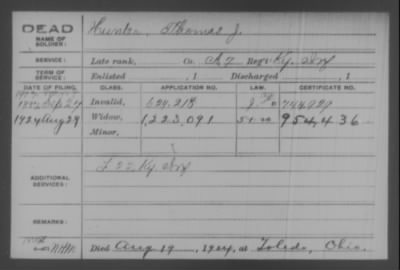 DEAD
NAME OF SOLDIER: Hunter, Thomas J.
SERVICE: Late rank, Co. Reg't Ky. Inf
TERM OF SERVICE: Enlisted , 1 Discharged , 1
DATE OF FILING. CLASS. APPLICATION NO. LAW. CERTIFICATE NO.
Invalid, 624,218
1924 Aug 29 Widow, 1,223,091 954,436
Minor,
ADDITIONAL SERVICES: Ky. Inf
REMARKS:
Died Aug 19, 1924, at Toledo, Ohio.